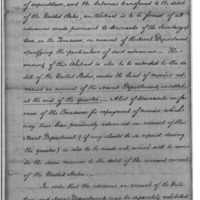 of expenditure, and the balance transferred to the debit
of the United States, an Abstract is to be formed of all
advances made pursuant to Warrants of the Secretary of
War on the Treasurer on account of the Naval Department
specifying the particulars of such advances. The
amount of this Abstract is also to be extended to the de-
bit of the United States, under the head of monies ad-
vanced on account of the Naval Department unsettled
at the end of the quarter. A list of Warrants in fa-
vor of the Treasurer for repayment of monies which
may have been previously advanced on account of the
Naval Department (if any should be so repaid during
the quarter) is also to be made out, which will be carried
in the same manner to the debit of the account current
of the United States.
In order that the advances on account of the Mili-
tary and Naval Departments may be separately exhibited